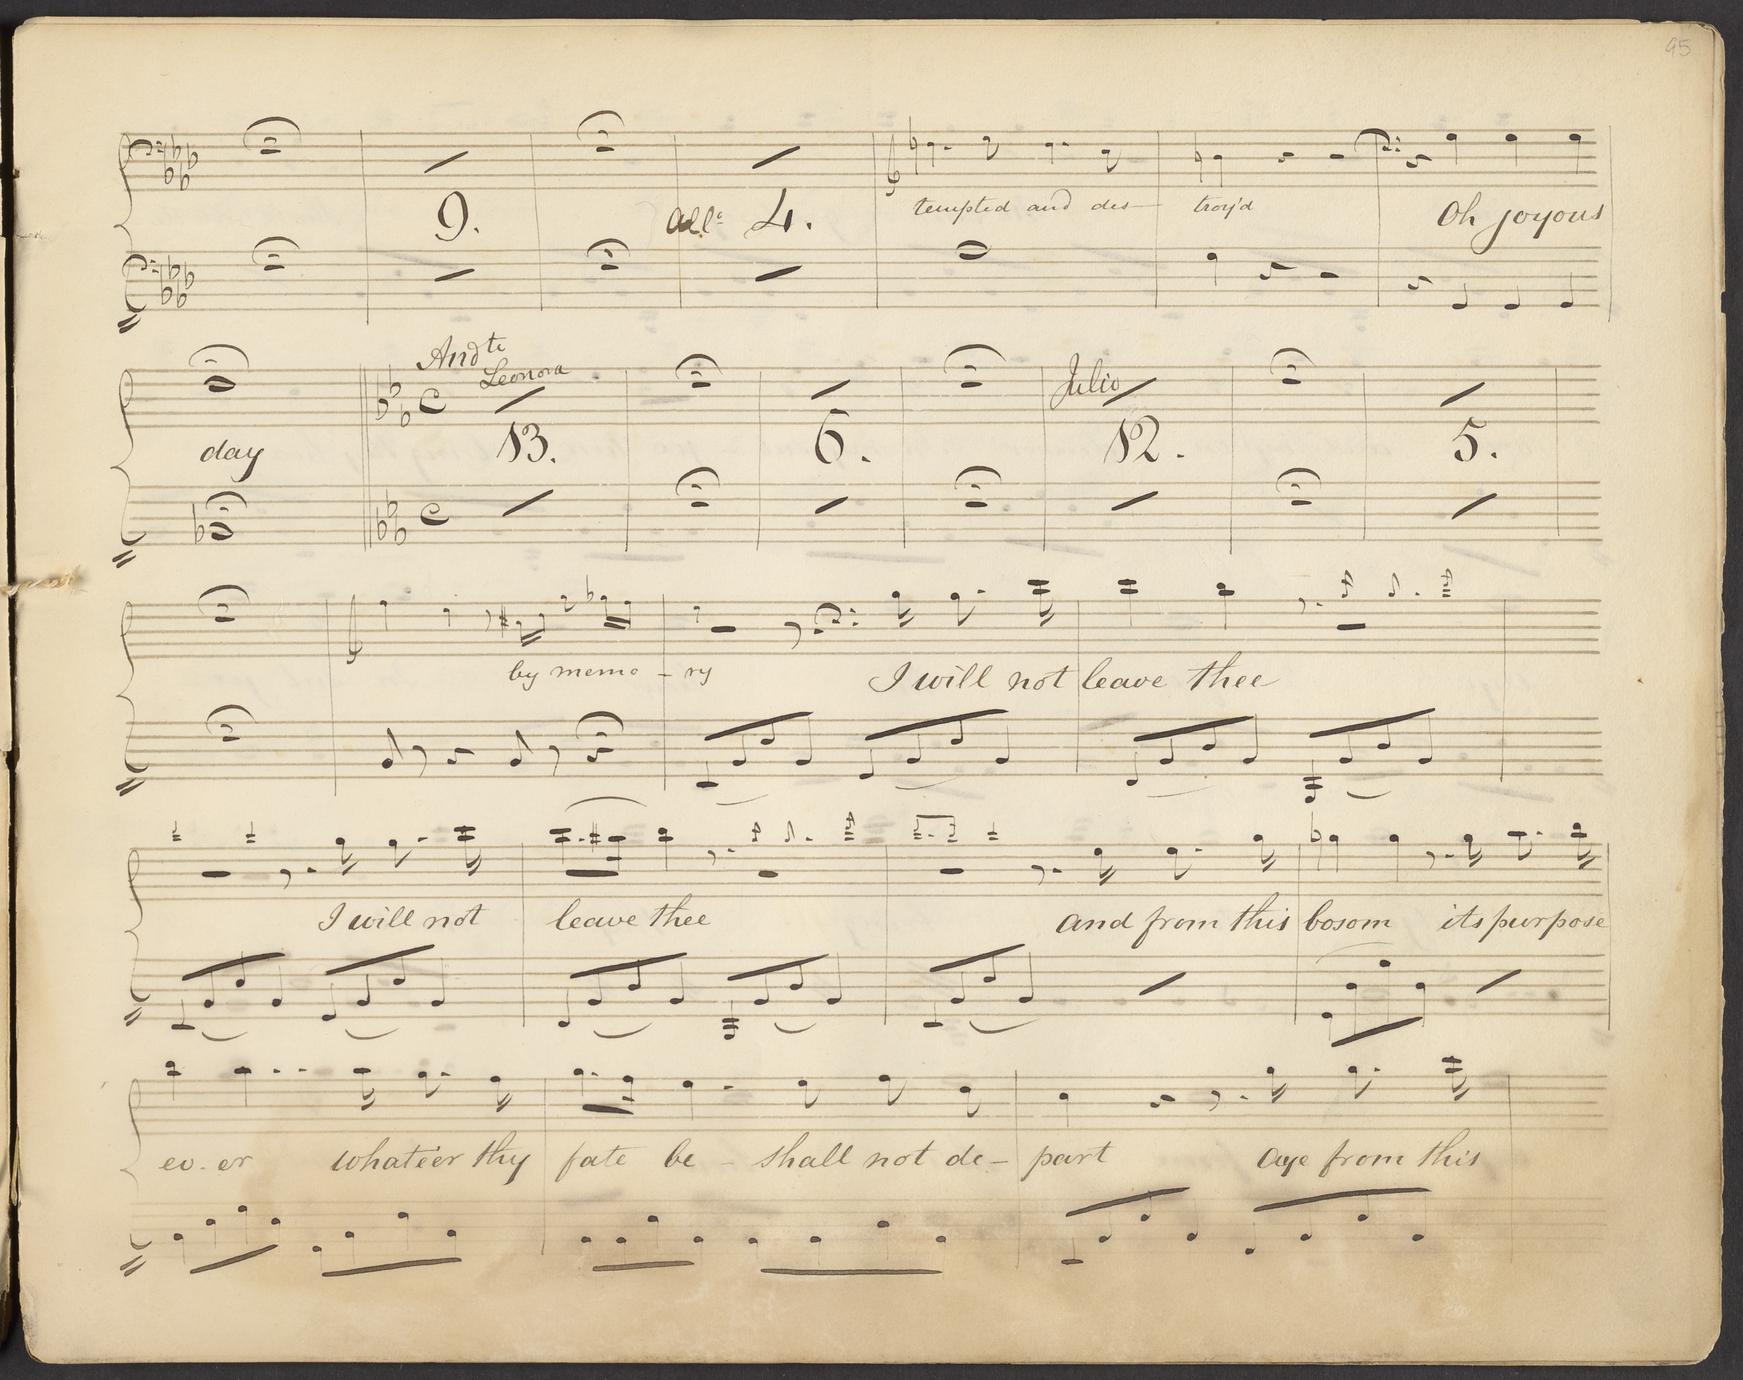 95
9. All.o 4. tempted and des- troy'd Oh joyous
Andte
Leonora Julio
day 13. 6. 12. 5.
by memo - ry I will not leave thee
I will not leave thee and from this bosom its purpose
ev. er whate'er thy fate be - shall not de- part Aye from this